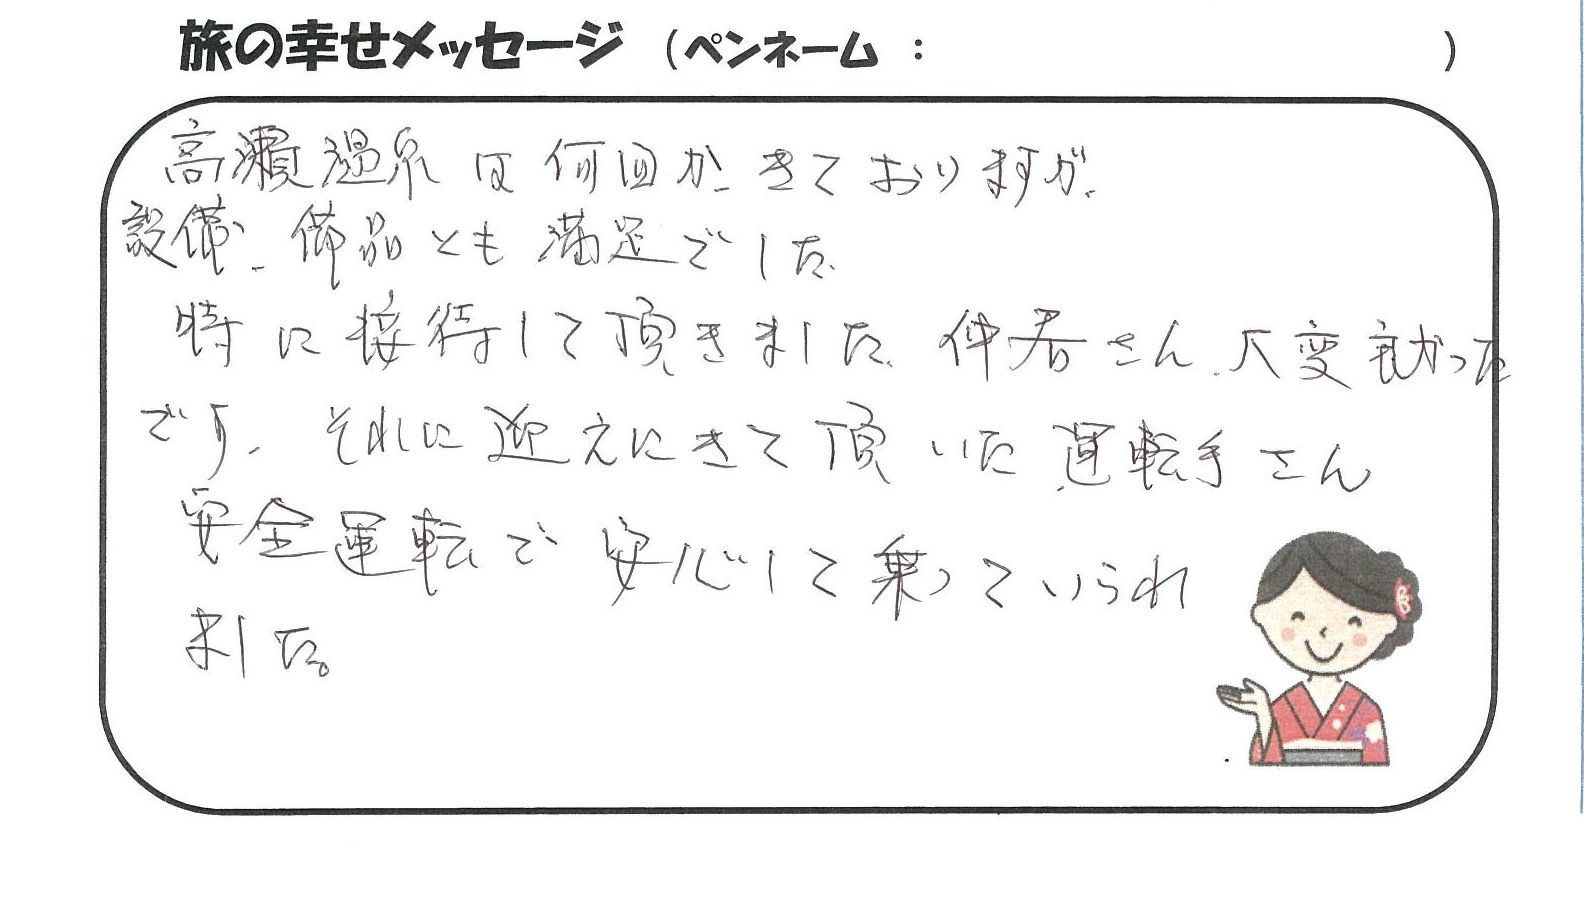 旅の幸せメッセージ （ペンネーム ： ）
高瀬温泉は何回か、きておりますが、
設備、備品とも満足でした。
特に接待して頂きました、仲居さん、大変良かった
です。それに迎えにきて頂いた運転手さん
安全運転で安心して乗っていられ
ました。